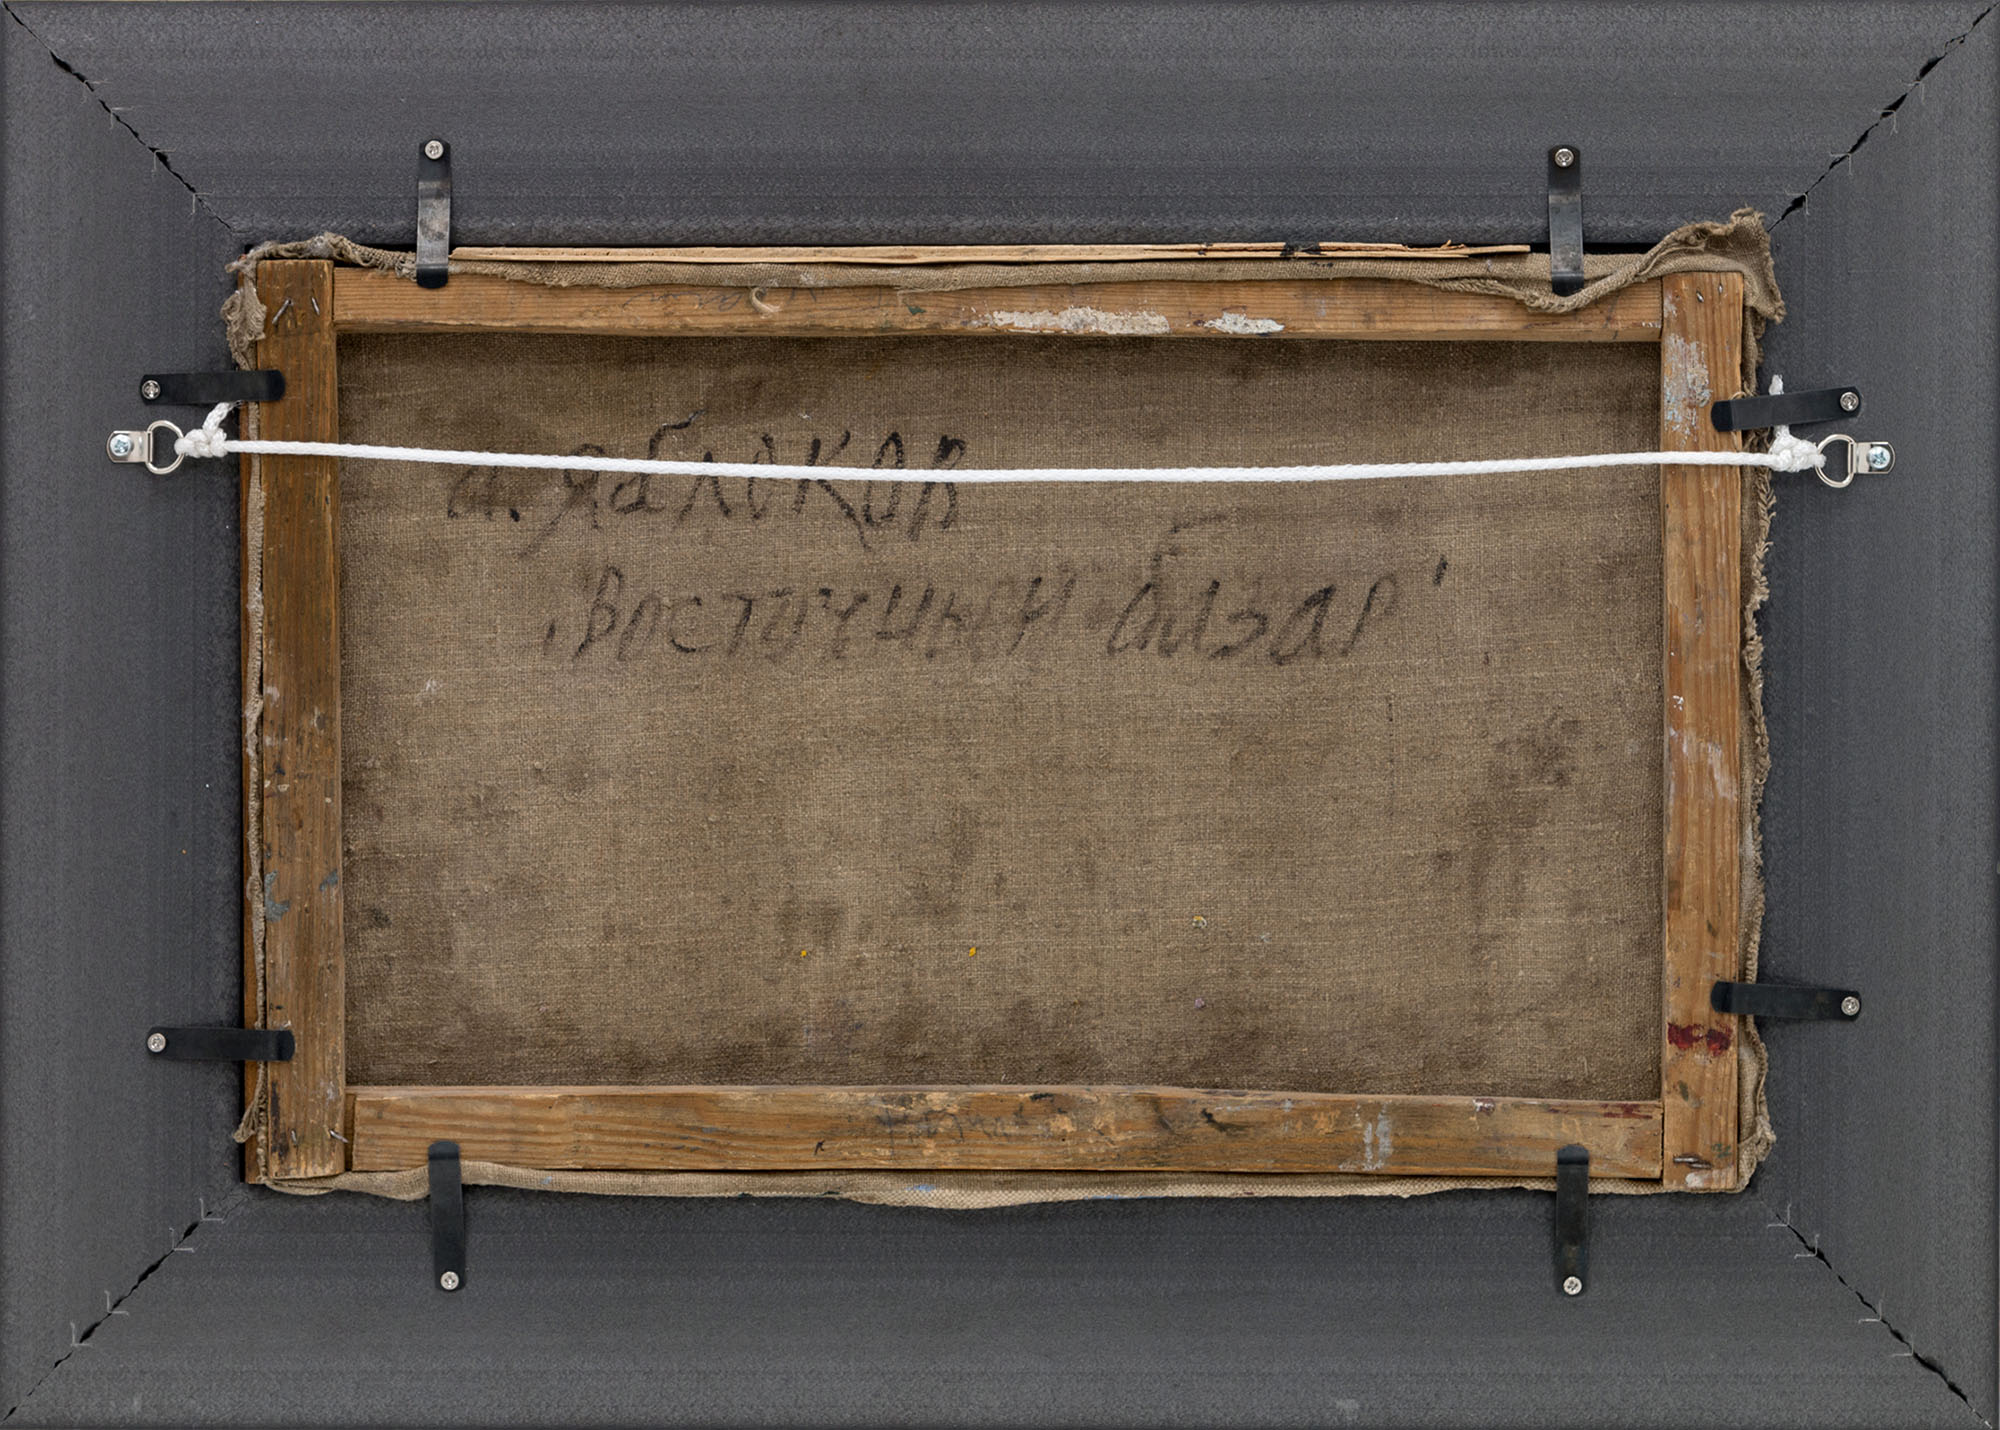 а. Яблоков
„Восточный базар"